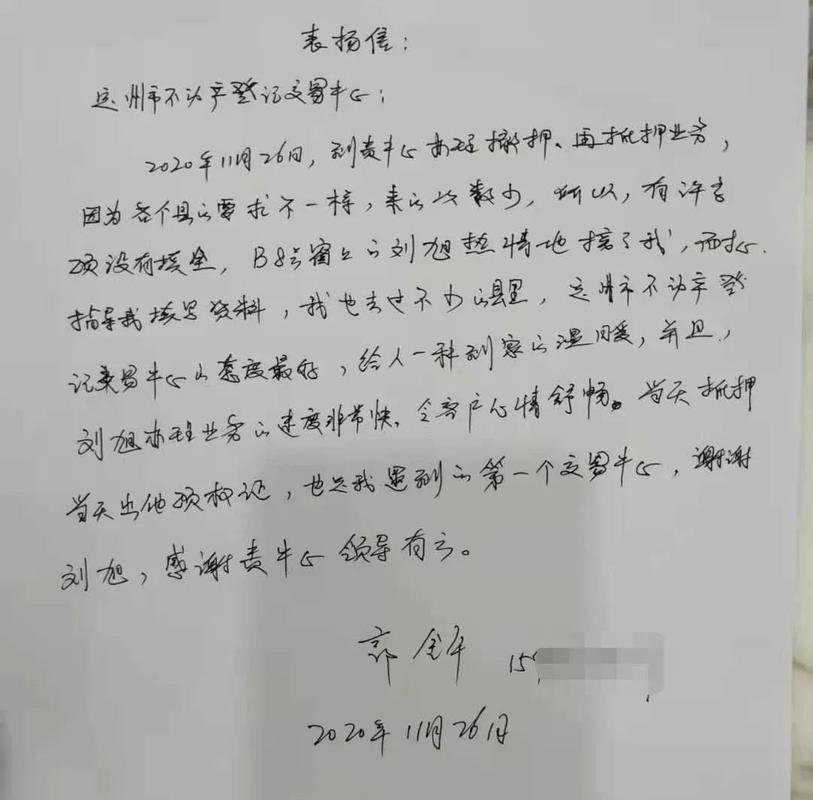 表扬信：
定州市不动产登记交易中心：
2020年11月26日，到贵中心办理撤押、再抵押业务，
因为各个县的要求不一样，来的次数少，所以，有许多
项没有填全，B8号窗上的刘旭热情地接了我，而耐心
指导我填写资料，我也去过不少的县里，定州市不动产登
记交易中心的态度最好，给人一种到家的温暖，并且，
刘旭办理业务的速度非常快，令客户心情舒畅。当天抵押
当天出他项权证，也是我遇到的第一个交易中心，谢谢
刘旭，感谢贵中心领导有方。
郭 15
2020年11月26日